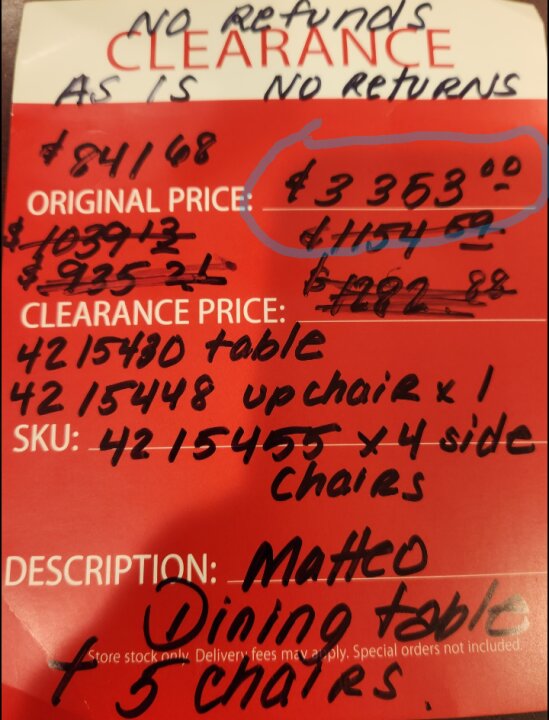 NO Refunds
CLEARANCE
AS IS NO RetuRNS
$841 68
ORIGINAL PRICE: $3353.00
$1039 13 $1154 59
$935 21 $1282 88
CLEARANCE PRICE:
4215430 table
4215448 upchaiR x 1
SKU: 4215455 x 4 side
ChaiRs
DESCRIPTION: Matteo
① Dining table
Store stock only. Delivery fees may apply. Special orders not included.
+ 5 chaiRs.